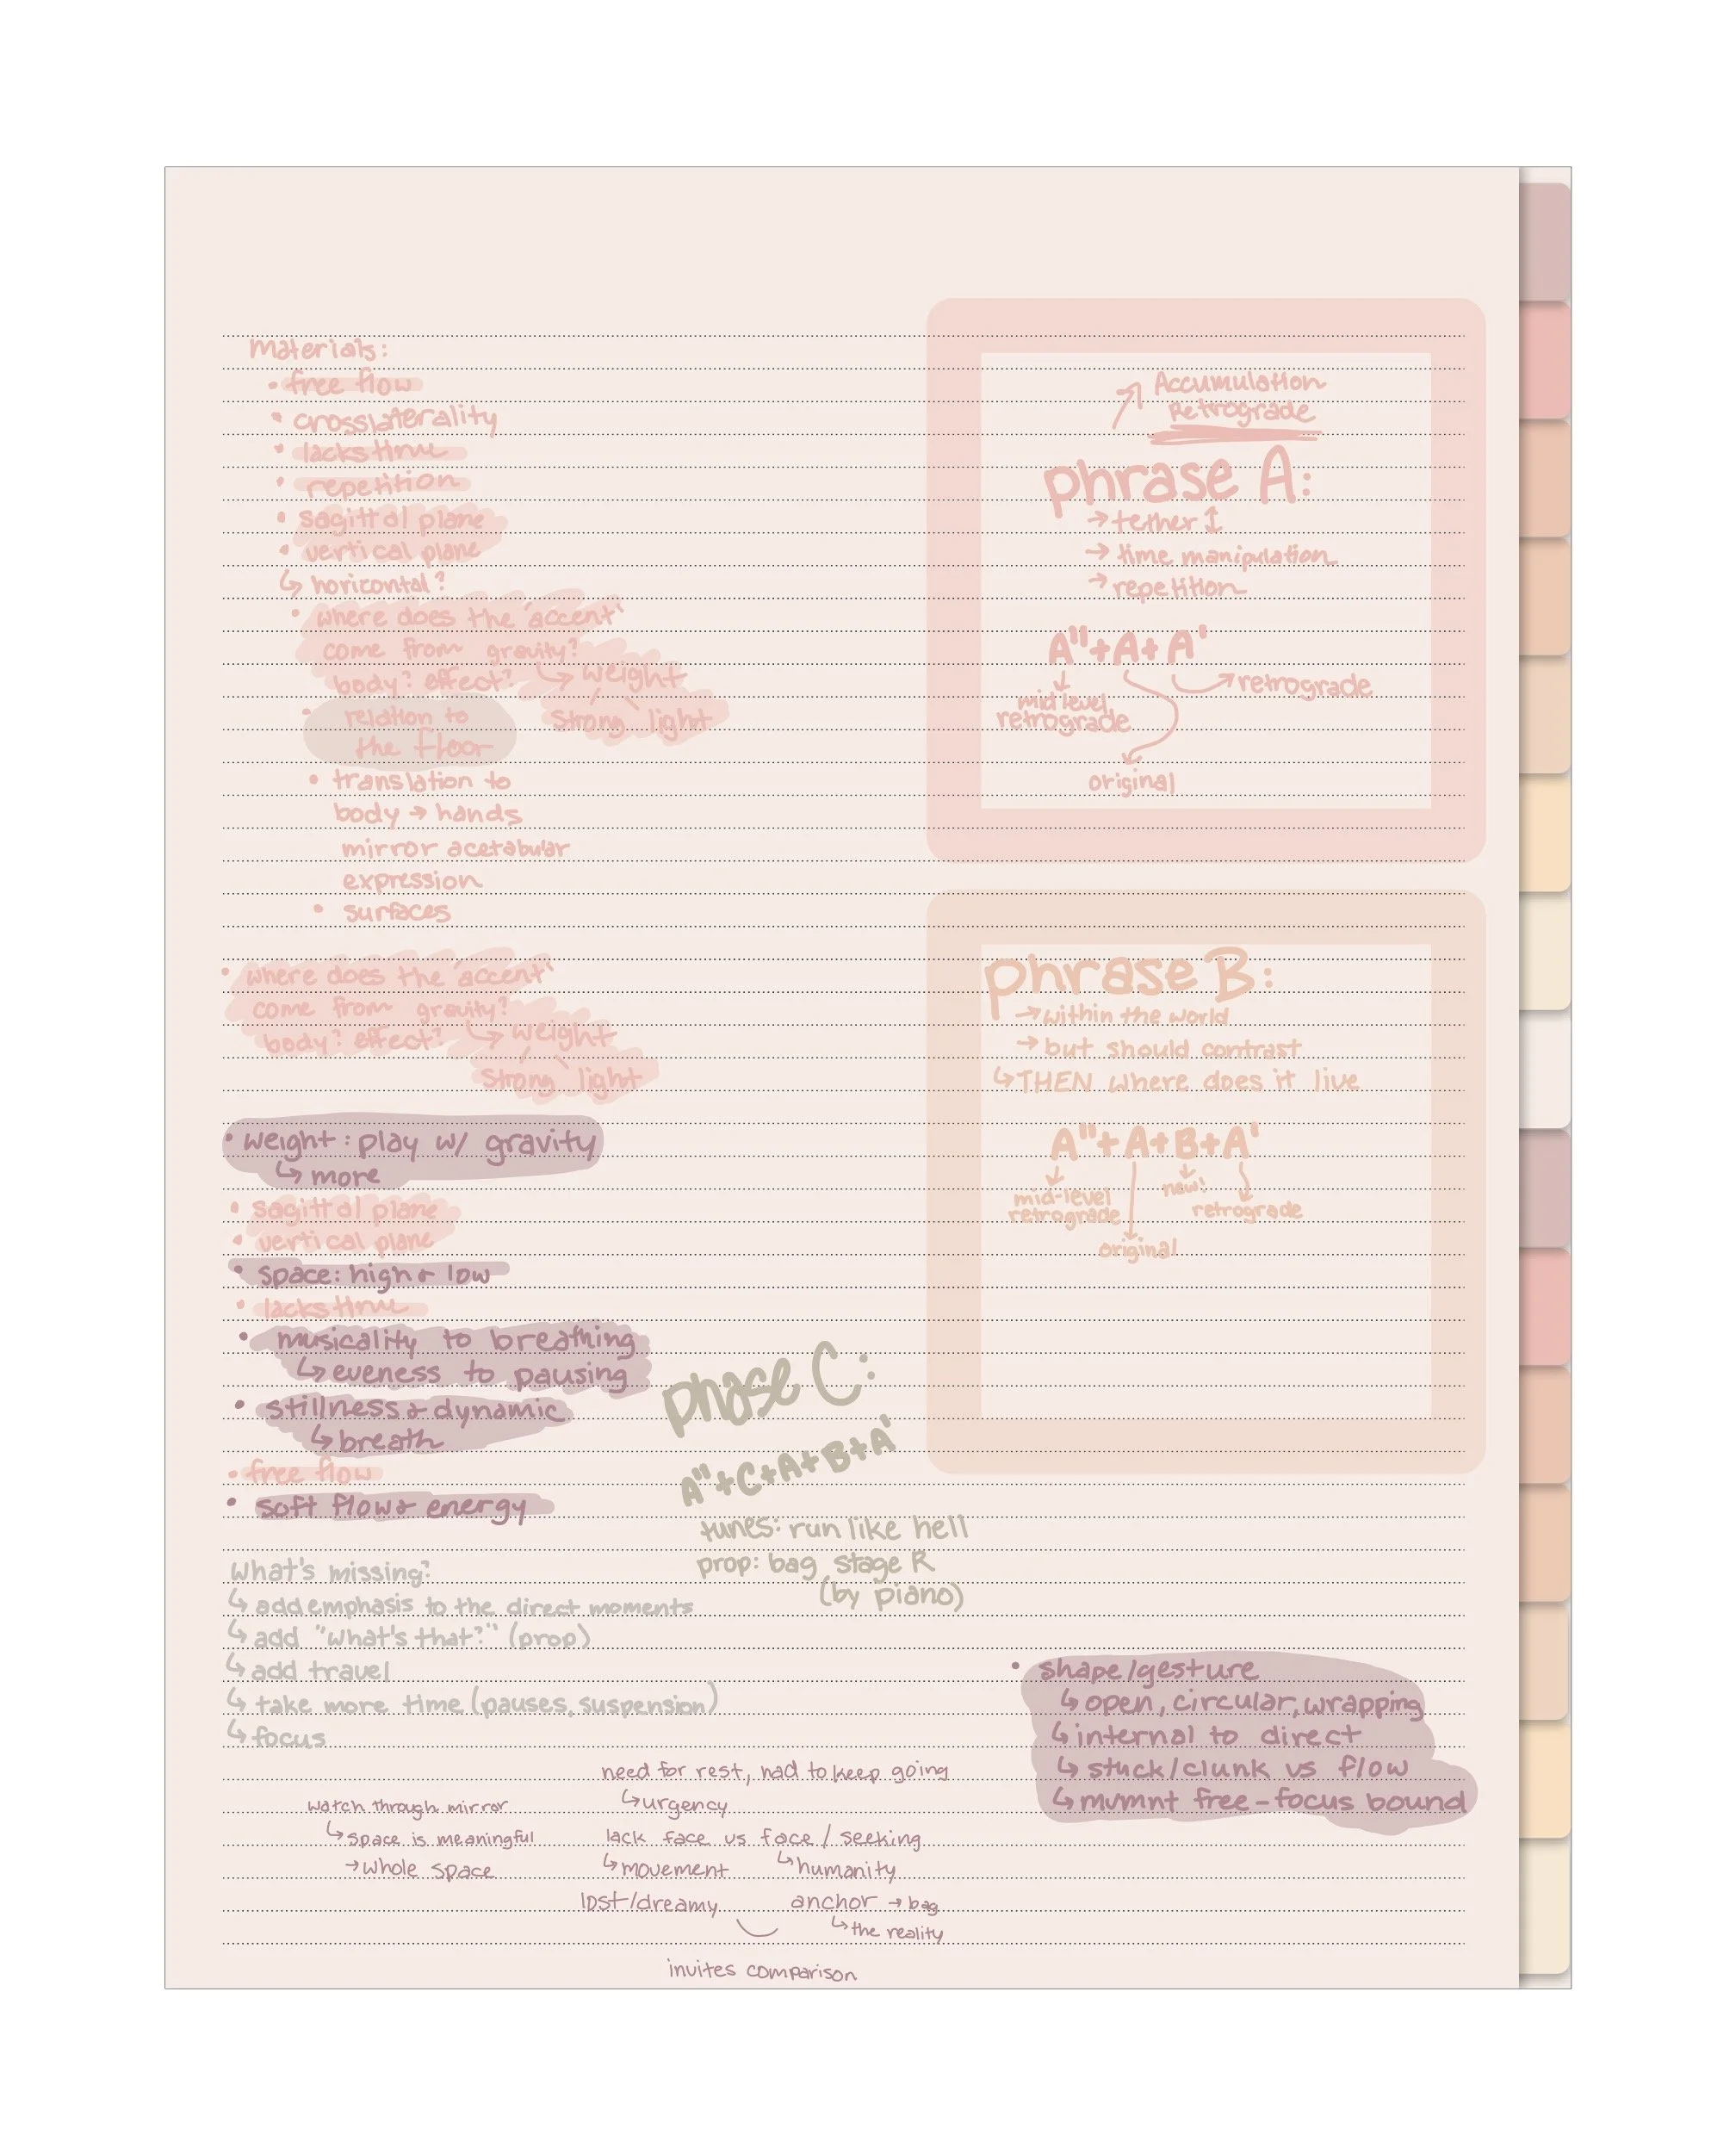 Materials:
• free flow
• crosslaterality
• lacks time
• repetition
• sagittal plane
• vertical plane
↳ horizontal?
• where does the "accent"
come from gravity?
body? effect? ↳ weight
strong light
• relation to
the floor
• translation to
body → hands
mirror acetabular
expression
• surfaces
• where does the "accent"
come from gravity?
body? effect? ↳ weight
strong light
• weight: play w/ gravity
↳ more
• sagittal plane
• vertical plane
• space: high & low
• lacks time
• musicality to breathing
↳ eveness to pausing
• stillness & dynamic
↳ breath
• free flow
• soft flow & energy
What's missing?
↳ add emphasis to the direct moments
↳ add "what's that?" (prop)
↳ add travel
↳ take more time (pauses, suspension)
↳ focus
Accumulation
Retrograde
phrase A:
→ tether ↕
→ time manipulation
→ repetition
A" + A + A'
mid level
retrograde
retrograde
original
phrase B:
→ within the world
→ but should contrast
↳ THEN where does it live
A" + A + B + A'
mid-level
retrograde
new!
retrograde
original
phase C:
A" + C + A + B + A'
tunes: run like hell
prop: bag stage R
(by piano)
• shape/gesture
↳ open, circular, wrapping
↳ internal to direct
↳ stuck/clunk vs flow
↳ mvmnt free - focus bound
watch through mirror
↳ space is meaningful
→ whole space
need for rest, had to keep going
↳ urgency
lack face vs face / seeking
↳ movement ↳ humanity
lost/dreamy anchor → bag
↳ the reality
invites comparison